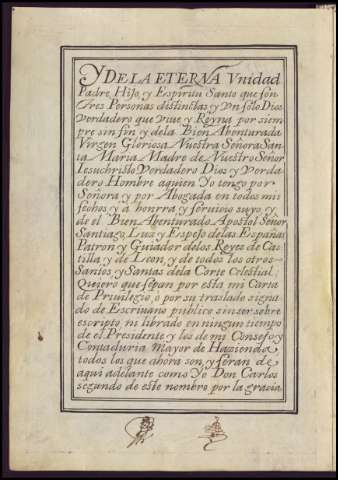 Y DE LA ETERNA Vnidad
Padre, Hijo, y Espiritu Santo que son
tres Personas distinctas y Vn sólo Dios
verdadero que viue y Reyna por siem
pre sin fin y dela Bien Abenturada
Virgen Gloriosa Nuestra Señora San
ta Maria Madre de Nuestro Señor
Iesuchristo Verdadero Dios y Verda
dero Hombre aquien Yo tengo por
Señora y por Abogada en todos mis
fechos y á honrra y seruicio suyo, y
de el Bien Abenturado Apostol Señor
Santiago, Luz y Espejo delas Españas
Patron y Guiador delos Reyes de Cas
tilla y de Leon, y de todos los otros
Santos y Santas dela Corte Celestial:
Quiero que sepan por esta mi Carta
de Priuilegio, ò por su traslado signa
do de Escriuano publico sin ser sobre
escripto, ni librado en ningun tiempo
de el Presidente y los de mi Consejo y
Contaduria Mayor de Hazienda
todos los que ahora son, y seran de
aqui adelante como Yo Don Carlos
segundo de este nombre por la gracia